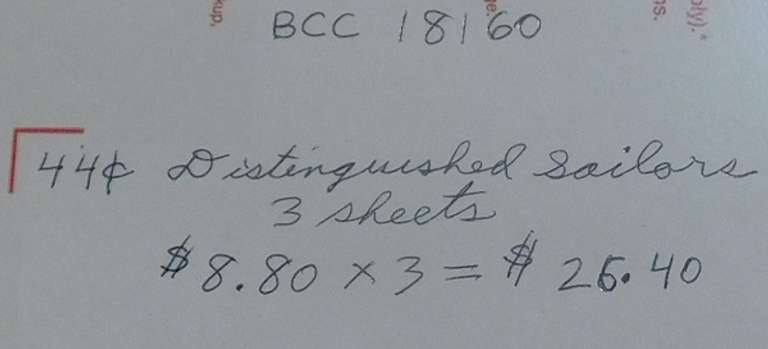 kup,
e.
ns.
ply).*
BCC 18160
44¢ Distinguished Sailors
3 sheets
$8.80 x 3 = $ 26.40